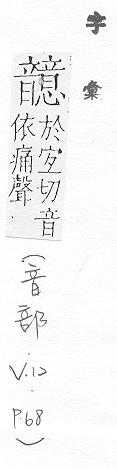 字彙
於宐切音
依痛聲
(音部 V.12. P68)